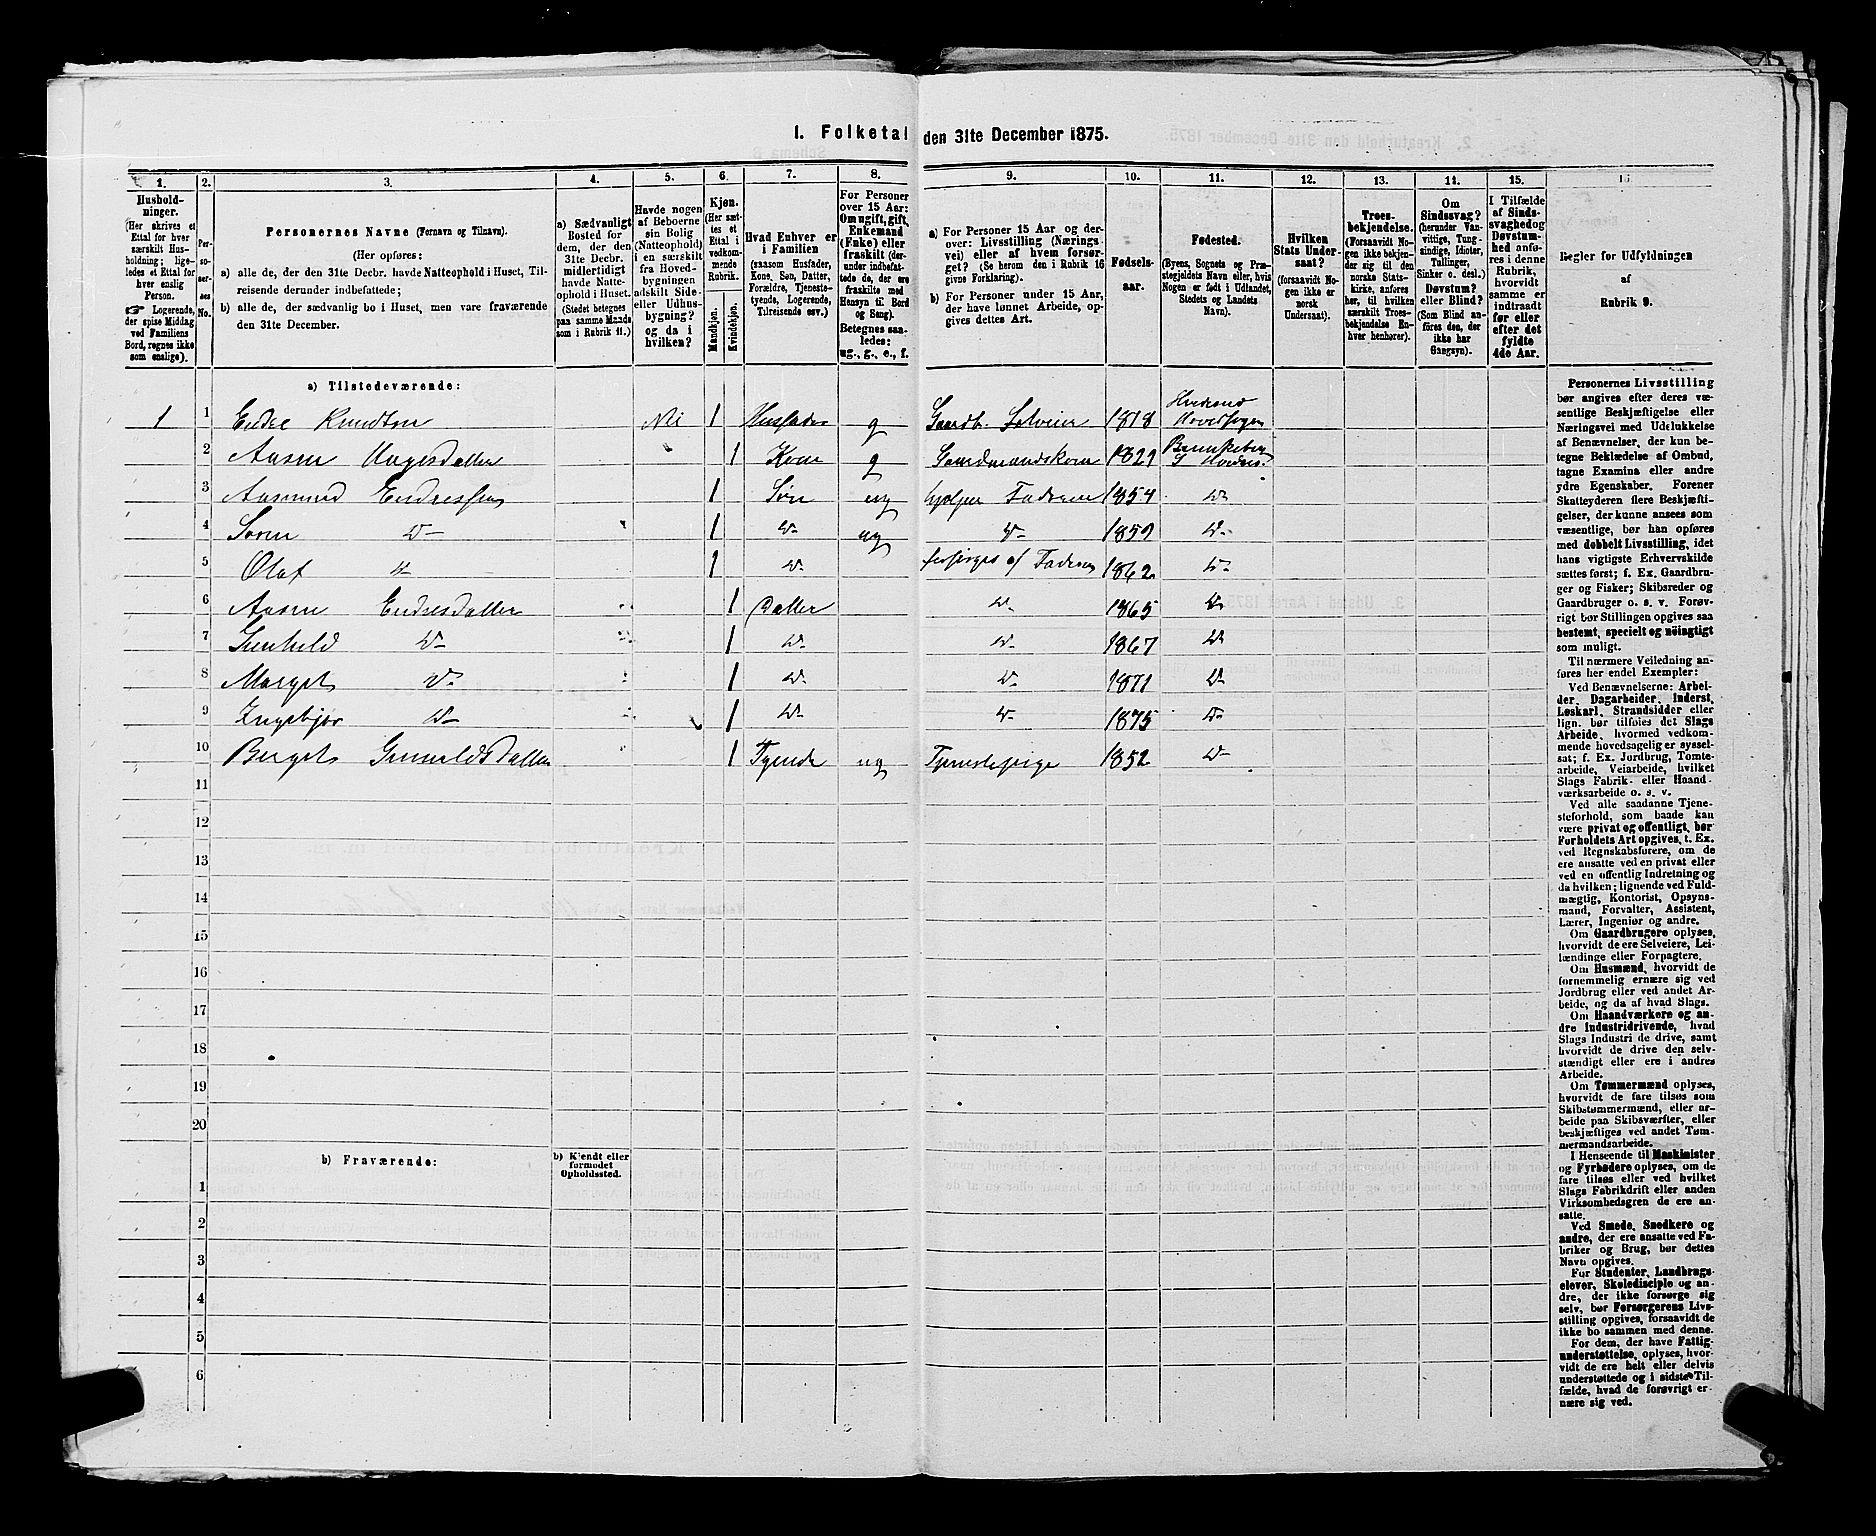 1. Folketal den 31te December 1875.
1.
2.
3.
4.
5.
6.
7.
8.
9.
10.
11.
12.
13.
14.
15.
16.
Hushold-
ninger.
(Her skrives et
Ettal for hver
særskilt Hus-
holdning; lige-
ledes et Ettal for
hver enslig
Person.
☞ Logerende,
der spise Middag
ved Familiens
Bord, regnes ikke
som enslige).
Per-
so-
ner-
nes
No.
Personernes Navne (Fornavn og Tilnavn).
(Her opføres:
a) alle de, der den 31te Decbr. havde Natteophold i Huset, Til-
reisende derunder indbefattede;
b) alle de, der sædvanlig bo i Huset, men vare fraværende
den 31te December.
a) Sædvanligt
Bosted for
dem, der den
31te Decbr.
midlertidigt
havde Natte-
ophold i Huset.
(Stedet betegnes
paa samme Maade
som i Rubrik 11.)
Havde nogen
af Beboerne
sin Bolig
(Natteophold)
i en særskilt
fra Hoved-
bygningen
adskilt Side-
eller Udhus-
bygning?
og da i
hvilken?
Kjøn.
(Her sæt-
tes et
Ettal i
vedkom-
mende
Rubrik.
Mandkjøn.
Kvindekjøn.
Hvad Enhver er
i Familien
(saasom Husfader,
Kone, Søn, Datter,
Forældre, Tjeneste-
tyende, Logerende,
Tilreisende osv.)
For Personer
over 15 Aar:
Om ugift, gift,
Enkemand
(Enke) eller
fraskilt (der-
under indbefat-
tede de, der ere
fraskilte med
Hensyn til Bord
og Seng).
Betegnes saa-
ledes:
ug., g., e., f.
a) For Personer 15 Aar og der-
over: Livsstilling (Nærings-
vei) eller af hvem forsør-
get? (Se herom den i Rubrik 16
givne Forklaring).
b) For Personer under 15 Aar,
der have lønnet Arbeide, op-
gives dettes Art.
Fødsels-
aar.
Fødested.
(Byens, Sognets og Præ-
stegjeldets Navn eller, hvis
Nogen er født i Udlandet,
Stedets og Landets
Navn).
Hvilken
Stats Under-
saat?
(forsaavidt No-
gen ikke er
norsk
Undersaat).
Troes-
bekjendelse.
(Forsaavidt No-
gen ikke bekjen-
der sig til den
norske Stats-
kirke, anføres
her, til hvilken
særskilt Troes-
bekjendelse En-
hver henhører).
Om
Sindssvag?
(herunder Van-
vittige, Tung-
sindige, Idioter,
Tullinger,
Sinker o. desl.)
Døvstum?
eller Blind?
(Som Blind an-
føres den, der
ikke har
Gangsyn).
I Tilfælde
af Sinds-
svaghed og
Døvstum-
hed anfø-
res i denne
Rubrik,
hvorvidt
samme er
indtraadt
før eller
efter det
fyldte
4de Aar.
Regler for Udfyldningen
af
Rubrik 9.
a) Tilstedeværende:
1 1 Endre Knudtsen Nei 1 Husfader g Gaardb. Selveier 1818 Hvideseid Hovedsogn
2 Aasne 1 Kone g Gaardmandskone 1829 Brunkeberg S Hvides.
3 Aasmund Endressen 1 Søn ug hjelper Faderen 1854 D-
4 Søren D- 1 D- ug D- 1859 D-
5 Olaf D- 1 D- forsørges af Faderen 1862 D-
6 Aasne Endresdatter 1 Datter D- 1865 D-
7 Gunhild D- 1 D- D- 1867 D-
8 Margit D- 1 D- D- 1871 D-
9 Ingebjør D- 1 D- D- 1875 D-
10 Bergit 1 Tyende ug Tjenestepige 1852 D-
11
12
13
14
15
16
17
18
19
20
b) Fraværende:
b) Kjendt eller
formodet
Opholdssted.
1
2
3
4
5
6
Personernes Livsstilling
bør angives efter deres væ-
sentlige Beskjæftigelse eller
Næringsvei med Udelukkelse
af Benævnelser, der kun be-
tegne Beklædelse af Ombud,
tagne Examina eller andre
ydre Egenskaber. Forener
Skatteyderen flere Beskjæfti-
gelser, der kunne ansees som
væsentlige, bør han opføres
med dobbelt Livsstilling, idet
hans vigtigste Erhvervskilde
sættes først; f. Ex. Gaardbru-
ger og Fisker; Skibsreder og
Gaardbruger o. s. v. Forøv-
rigt bør Stillingen opgives saa
bestemt, specielt og nøiagtigt
som muligt.
Til nærmere Veiledning an-
føres her endel Exempler:
Ved Benævnelserne: Arbei-
der, Dagarbeider, Inderst,
Løskarl, Strandsidder eller
lign. bør tilføies det Slags
Arbeide, hvormed vedkom-
mende hovedsagelig er syssel-
sat; f. Ex. Jordbrug, Tomte-
arbeide, Veiarbeide, hvilket
Slags Fabrik- eller Haand-
værksarbeide o. s. v.
Ved alle saadanne Tjene-
steforhold, som baade kan
være privat og offentligt, bør
Forholdets Art opgives, t. Ex.
ved Regnskabsførere, om de
ere ansatte ved en privat eller
ved en offentlig Indretning og
da hvilken; lignende ved Fuld-
mægtig, Kontorist, Opsyns-
mand, Forvalter, Assistent,
Lærer, Ingeniør og andre.
Om Gaardbrugere oplyses,
hvorvidt de ere Selveiere, Lei-
lændinge eller Forpagtere.
Om Husmænd, hvorvidt de
fornemmelig ernære sig ved
Jordbrug eller ved andet Ar-
beide, og da af hvad Slags.
Om Haandværkere og an-
dre Industridrivende, hvad
Slags Industri de drive, samt
hvorvidt de drive den selv-
stændigt eller ere i andres
Arbeide.
Om Tømmermænd oplyses,
hvorvidt de fare tilsøs som
Skibstømmermænd, eller ar-
beide paa Skibsværfter, eller
beskjæftiges ved andet Tøm-
mermandsarbeide.
I Henseende til Maskinister
og Fyrbødere oplyses, om de
fare tilsøs eller ved hvilket
Slags Fabrikdrift eller anden
Virksomhedsgren de ere an-
satte.
Ved Smede, Snedkere og
andre, der ere ansatte ved Fa-
briker og Brug, bør dettes
Navn opgives.
For Studenter, Landbrugs-
elever, Skoledisciple og an-
dre, der ikke forsørge sig
selv, bør Forsørgerens Livs-
stilling opgives, forsaavidt de
ikke bo sammen med denne.
For dem, der have Fattig-
understøttelse, oplyses, hvor-
vidt de ere helt eller delvis
understøttede og i sidste Til-
fælde, hvad de forøvrigt er-
nære sig ved.